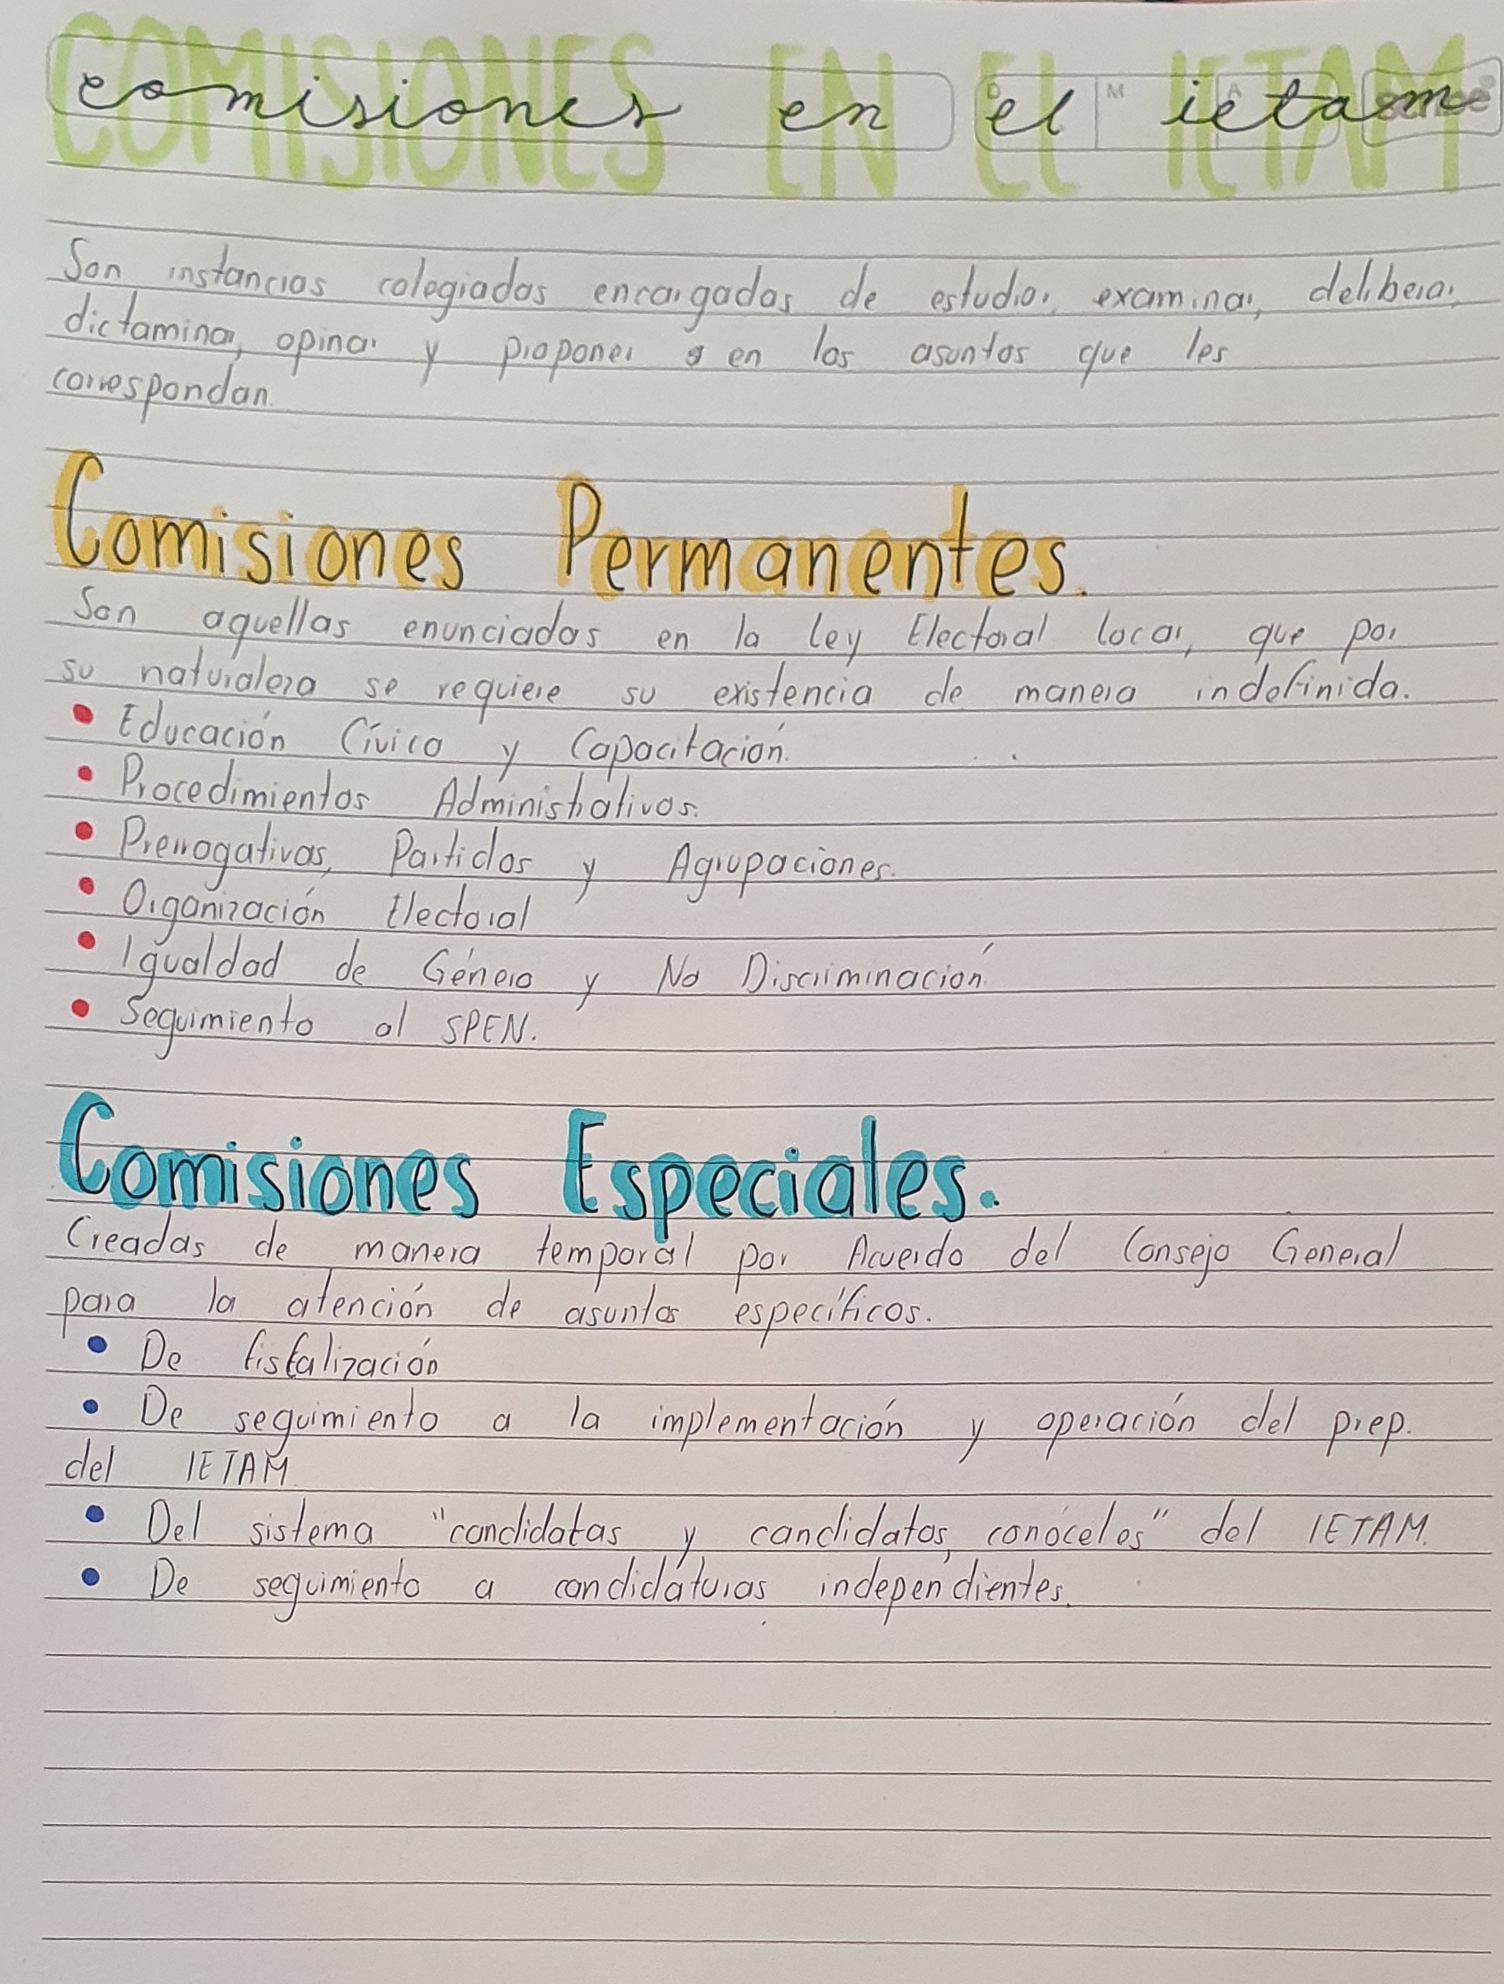 COMISIONES EN EL IETAM
comisiones en el ietam
Son instancias colegiadas encargadas de estudiar, examinar, deliberar,
dictaminar, opinar y proponer en los asuntos que les
correspondan.
Comisiones Permanentes.
Son aquellas enunciadas en la Ley Electoral local, que por
su naturaleza se requiere su existencia de manera indefinida.
• Educación Cívica y Capacitación.
• Procedimientos Administrativos.
• Prerrogativas, Partidos y Agrupaciones.
• Organización Electoral
• Igualdad de Género y No Discriminación
• Seguimiento al SPEN.
Comisiones Especiales.
Creadas de manera temporal por Acuerdo del Consejo General
para la atención de asuntos específicos.
• De fiskalización
• De seguimiento a la implementación y operación del prep.
del IETAM.
• Del sistema "candidatas y candidatos, conócelos" del IETAM.
• De seguimiento a candidaturas independientes.